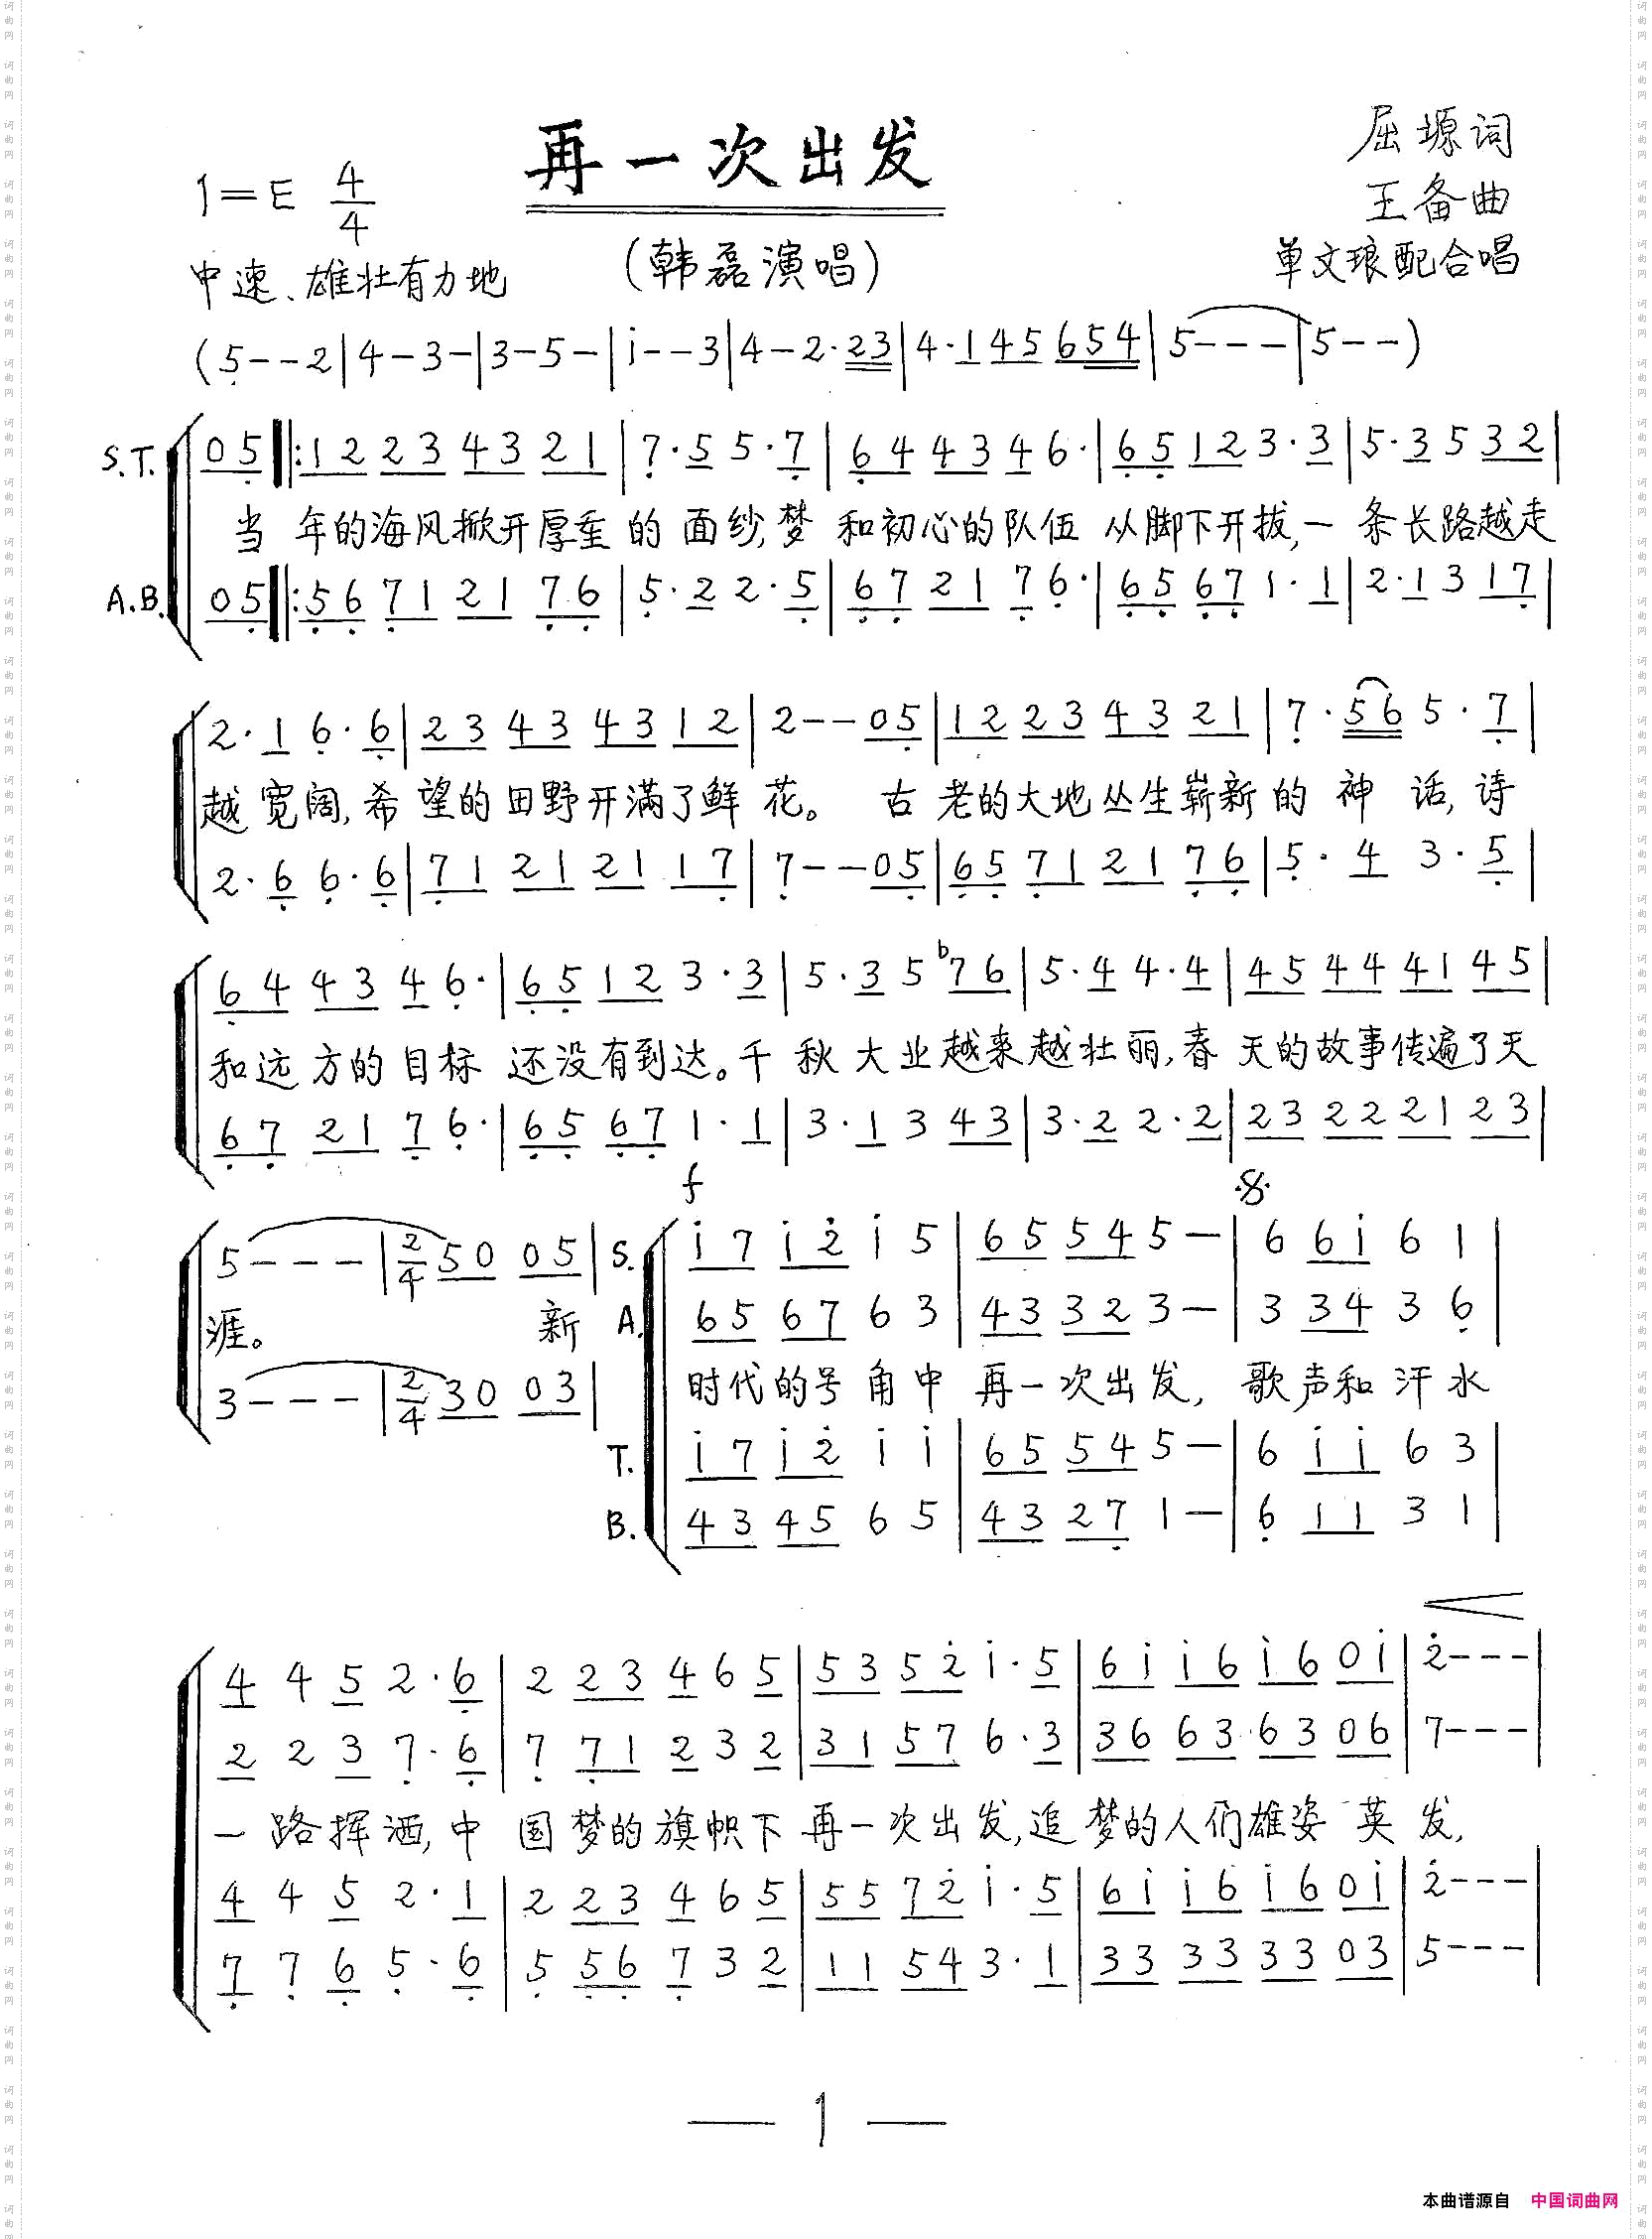 再一次出发
屈塬词
1=E 4/4
王备曲
(韩磊演唱)
单文琅配合唱
中速、雄壮有力地
(5--2|4-3-|3-5-|i--3|4-2·23|4·145654|5---|5--)
S.T. 05‖:12234321|7·55·7|644346·|65123·3|5·3532|
当年的海风掀开厚重的面纱,梦和初心的队伍从脚下开拔,一条长路越走
A.B. 05‖:56712176|5·22·5|672176·|65671·1|2·1317|
2·16·6|23434312|2--05|12234321|7·565·7|
越宽阔,希望的田野开满了鲜花。古老的大地丛生崭新的神话,诗
2·66·6|71212117|7--05|65712176|5·43·5|
644346·|65123·3|5·35b76|5·44·4|45444145|
和远方的目标还没有到达。千秋大业越来越壮丽,春天的故事传遍了天
672176·|65671·1|3·1343|3·22·2|23222123|
f
5---|2/4 50 05| S. i7i2i5|65545-|66i61|
涯。 新 A. 656763|43323-|33436|
3---|2/4 30 03| 时代的号角中再一次出发,歌声和汗水
T. i7i2ii|65545-|6ii63|
B. 434565|43271-|61131|
4452·6|223465|5352i·5|6ii6i60i|2---
2237·6|771232|31576·3|36636306|7---
一路挥洒,中国梦的旗帜下再一次出发,追梦的人们雄姿英发,
4452·1|223465|5572i·5|6ii6i60i|2---
7765·6|556732|11543·1|33333303|5---
— 1 —
本曲谱源自 中国词曲网